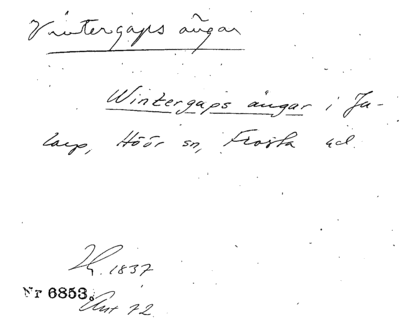 Vintergaps ängar
Wintergaps ängar i Ja-
larp, Höör sn, Frosta hd.
1837
Nr 6853.
Ant 72